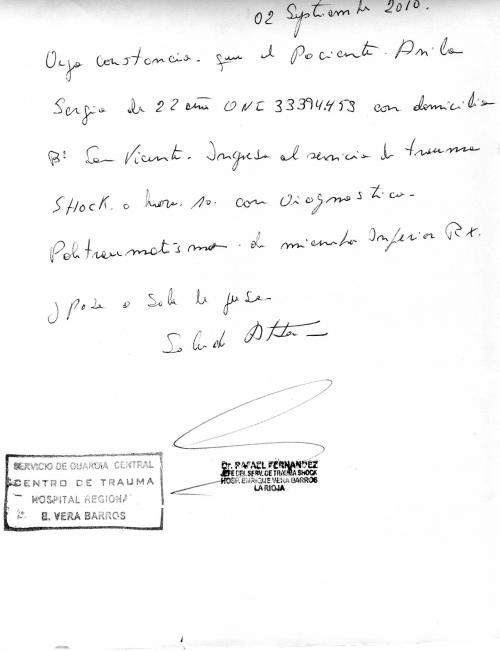 02 Septiembre 2010.
Dejo constancia. que el Paciente. Avila
Sergio de 22 años DNI 33394453 con domicilio
B: San Vicente. Ingresa al servicio de trauma
SHOCK. a hora. 10. con Diagnostico-
Politraumatismo. de miembro Inferior RX.
y pasa a Sala de
Saludo Atte
SERVICIO DE GUARDIA CENTRAL
CENTRO DE TRAUMA
HOSPITAL REGIONAL
E. VERA BARROS
Dr. RAFAEL FERNANDEZ
JEFE DEL SERV. DE TRAUMA SHOCK
HOSP. ENRIQUE VERA BARROS
LA RIOJA